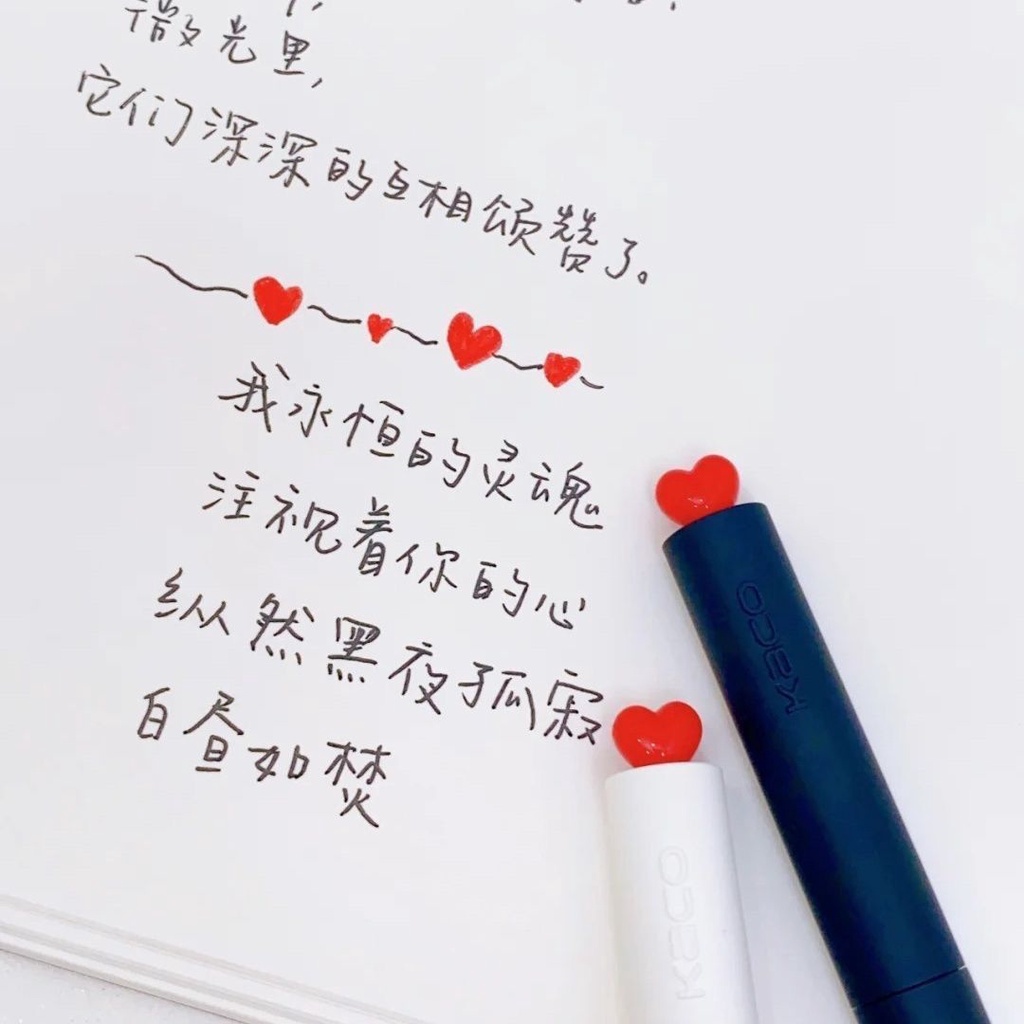 微光里，
它们深深的互相颂赞了。
我永恒的灵魂
注视着你的心
纵然黑夜孤寂
白昼如焚
KACO
KACO